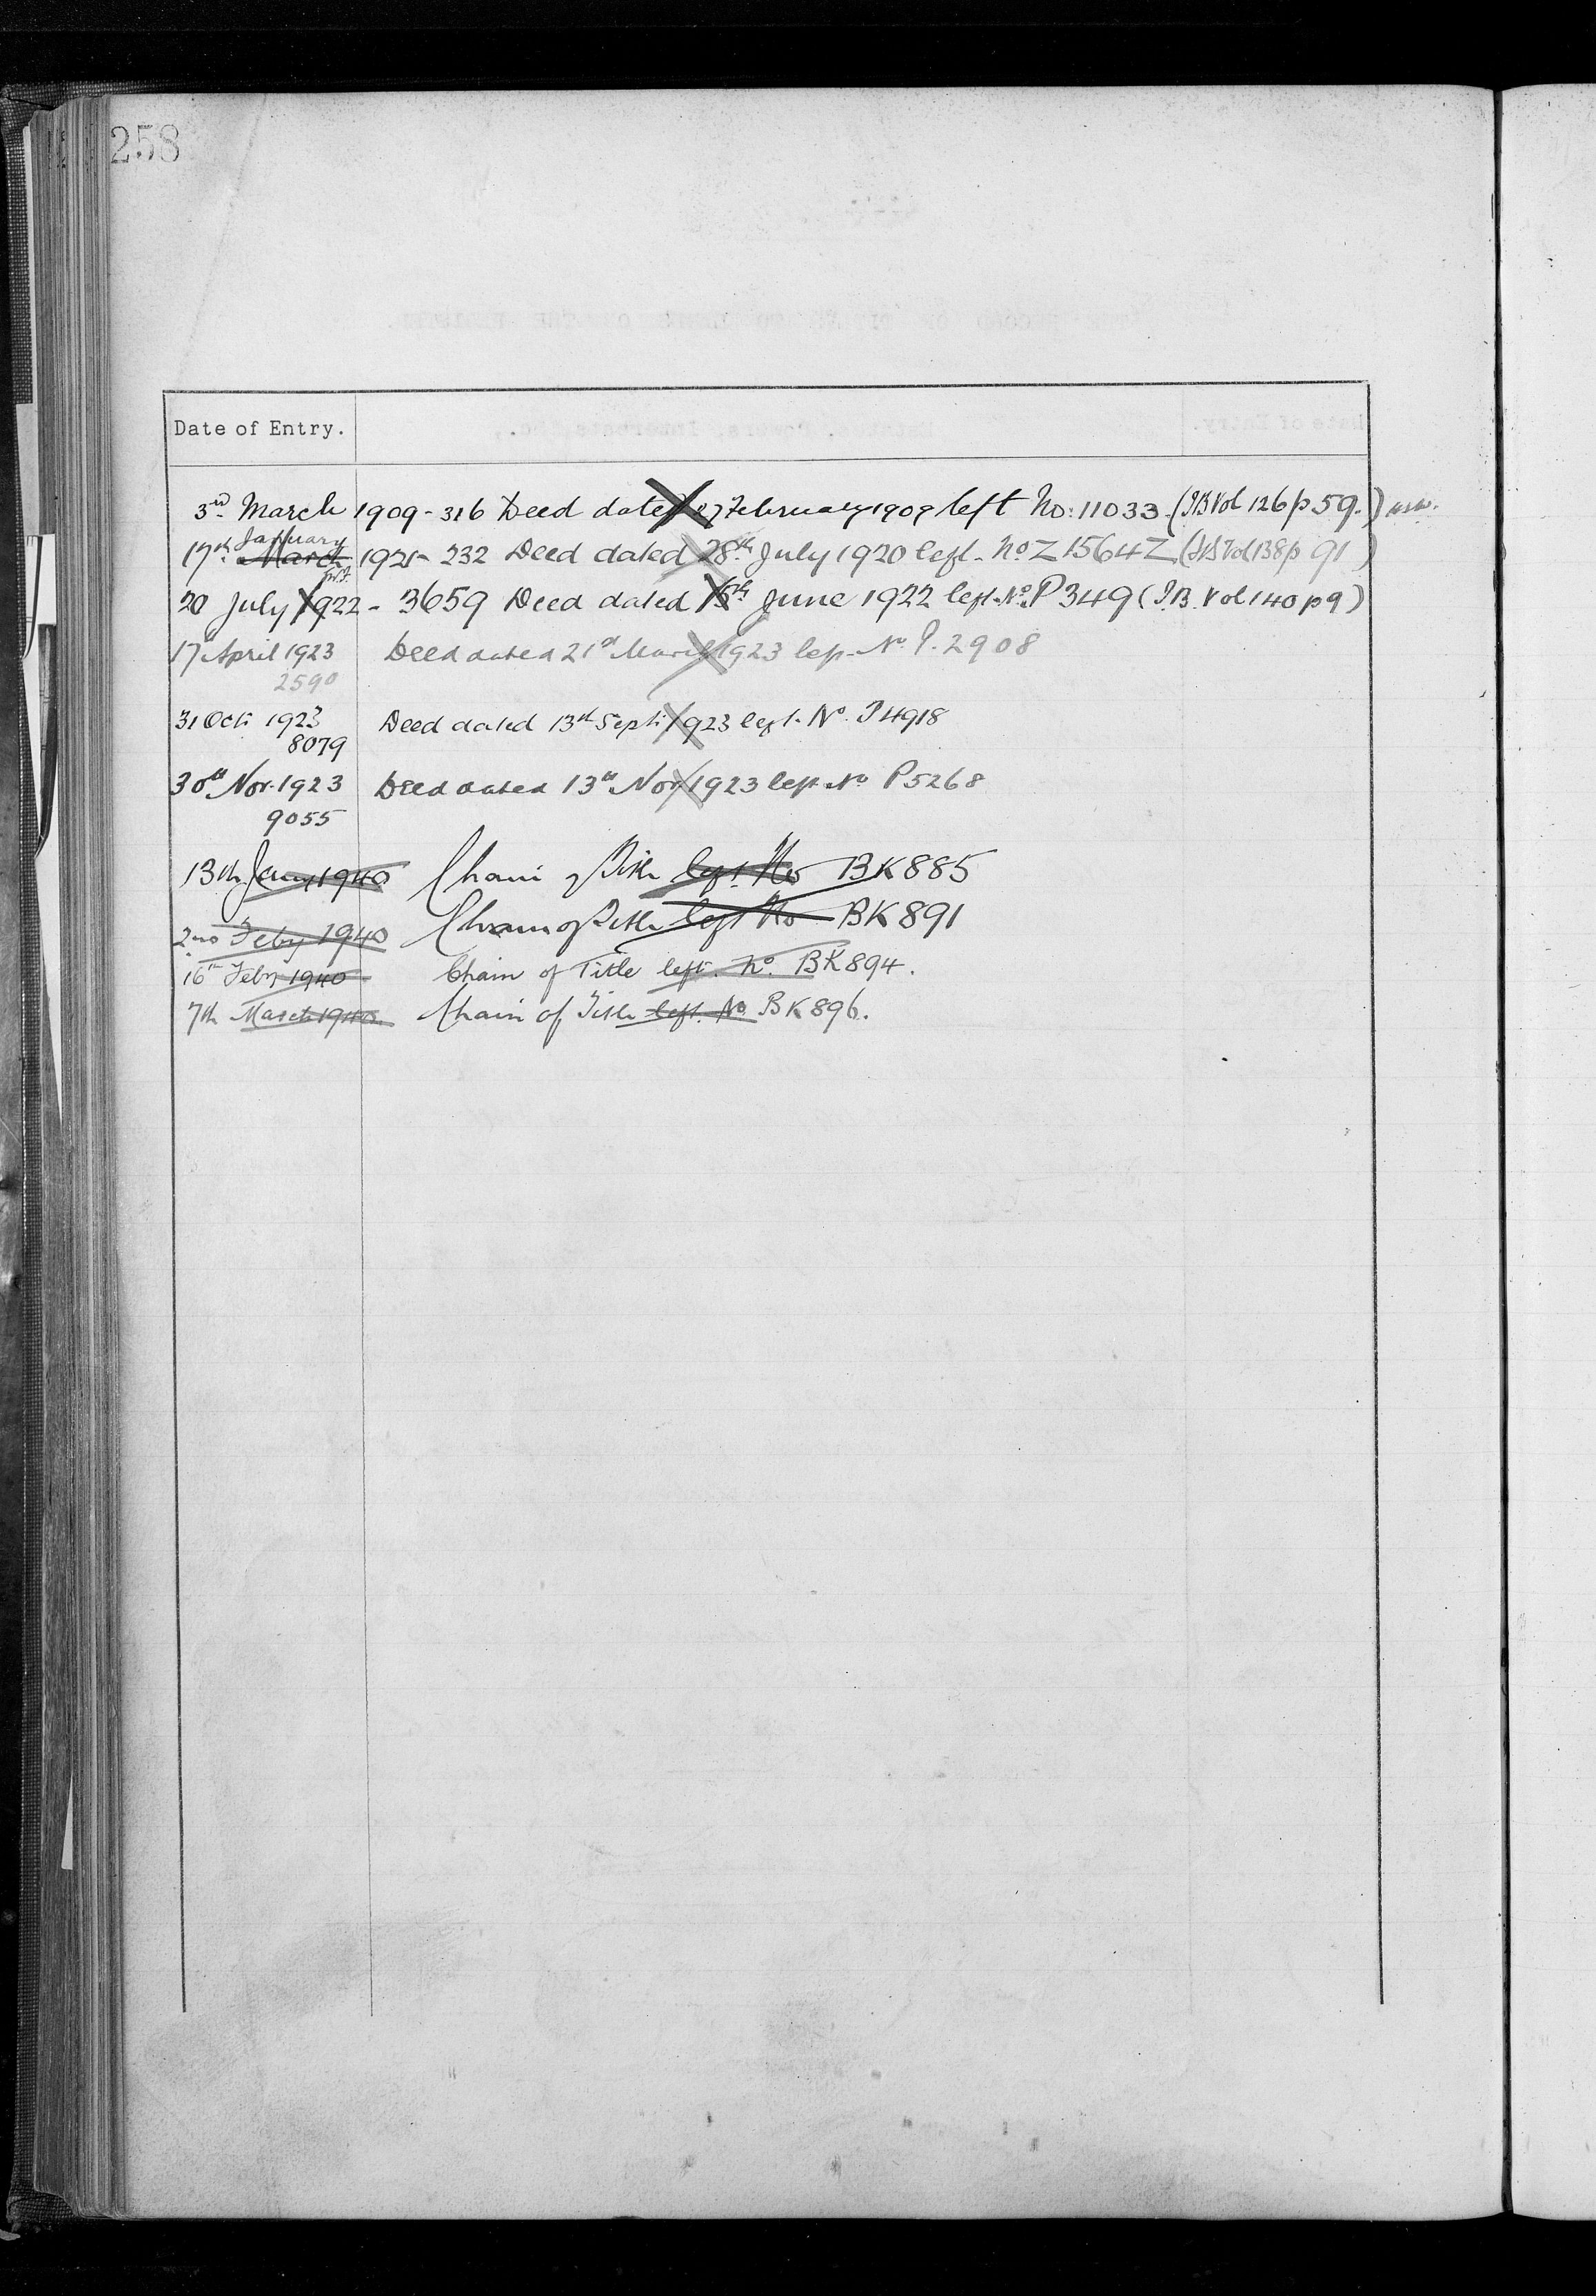 258
Date of Entry.
3rd March 1909 - 316 Deed dated 27 February 1909 left No: 11033 (I.B Vol 126 p 59.)
January
17th March 1921 - 232 Deed dated 28th July 1920 left No Z1564Z (I.B Vol 138 p 91)
20 July 1922 - 3659 Deed dated 15th June 1922 left No. P349 (I.B. Vol 140 p 9)
17 April 1923 Deed dated 21st March 1923 left No P. 2908
2590
31 Oct: 1923 Deed dated 13th Sept: 1923 left No. P4918
8079
30th Nov. 1923 Deed dated 13th Nov 1923 left No P5268
9055
13th Jany 1940 Chain of Title left No BK885
2nd Feby 1940 Chain of Title left No BK891
16th Feby 1940 Chain of Title left. No. BK894.
7th March 1940 Chain of Title left. No BK896.